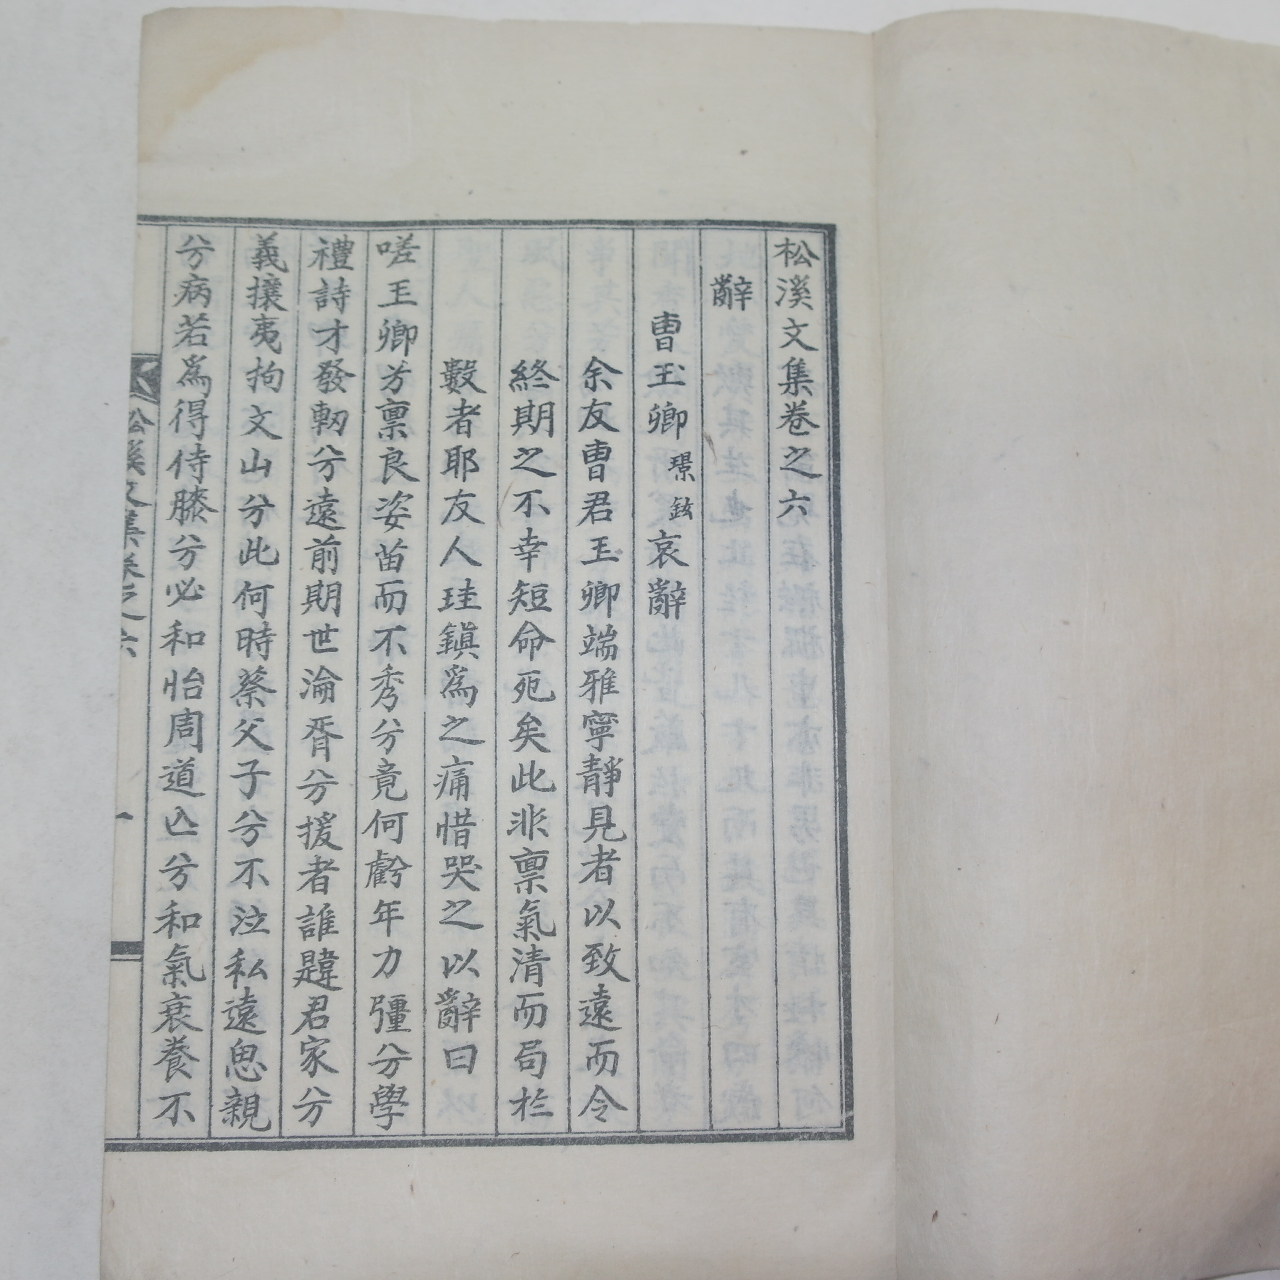 松溪文集卷之六
辭
曺玉卿 璟鉉 哀辭
余友曺君玉卿端雅寧靜見者以致遠而令
終期之不幸短命死矣此非禀氣清而局於
數者耶友人珪鎭爲之痛惜哭之以辭曰
嗟玉卿芳禀良姿苗而不秀兮竟何虧年力彊兮學
禮詩才發軔兮遠前期世淪胥兮援者誰韙君家兮
義攘夷拘文山兮此何時蔡父子兮不泣私遠思親
兮病若爲得侍膝兮必和怡周道亾兮和氣衰養不
松溪文集卷之六
一